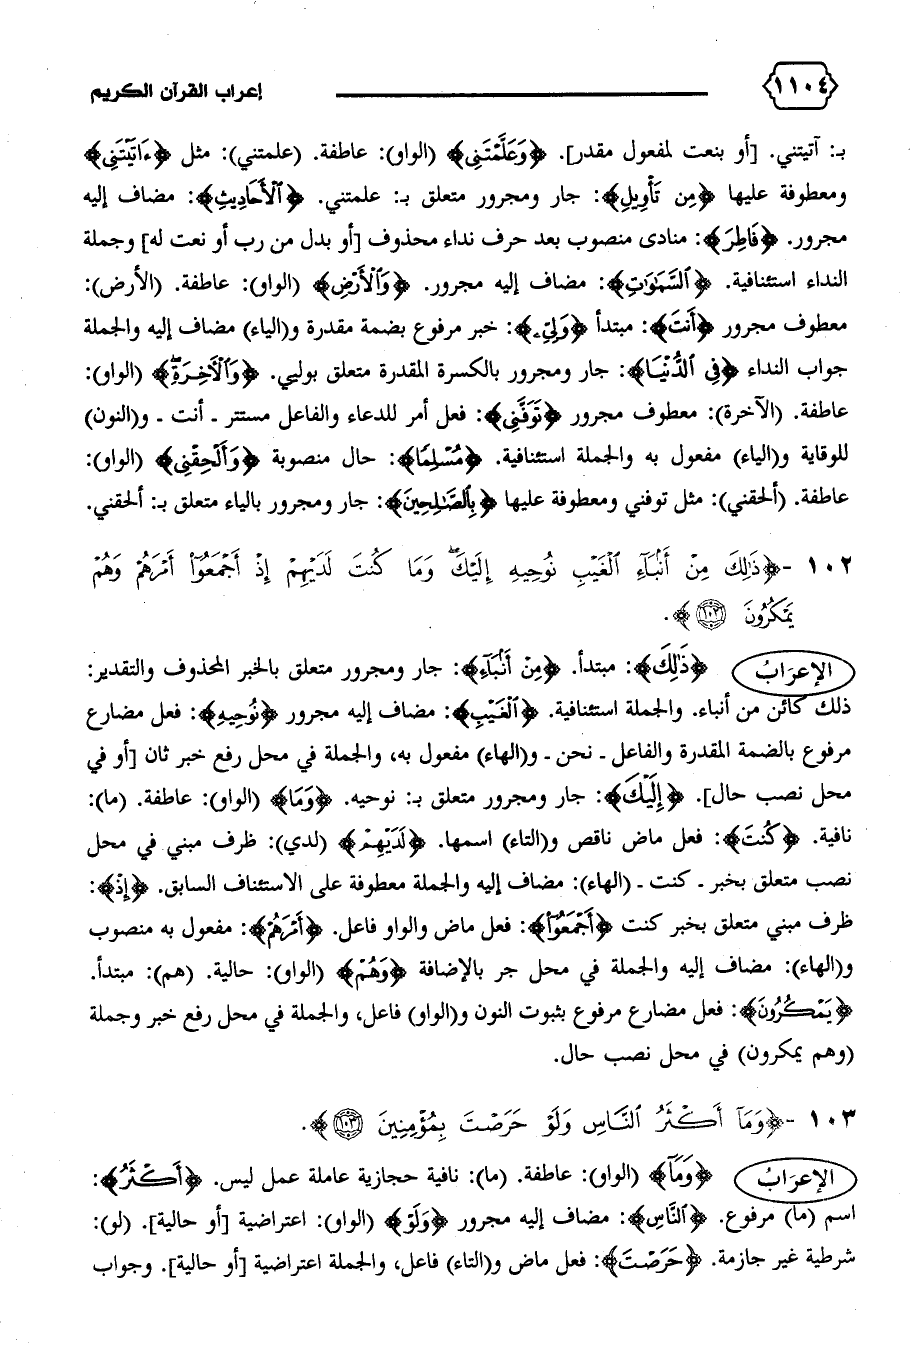 ١١٠٤ إعراب القرآن الكريم
بـ: آتيتني. [أو بنعت لمفعول مقدر]. ﴿وَعَلَّمْتَنِي﴾ (الواو): عاطفة. (علمتني): مثل ﴿ءَاتَيْتَنِي﴾
ومعطوفة عليها ﴿مِن تَأْوِيلِ﴾: جار ومجرور متعلق بـ: علمتني. ﴿ٱلْأَحَادِيثِ﴾: مضاف إليه
مجرور. ﴿فَاطِرَ﴾: منادى منصوب بعد حرف نداء محذوف [أو بدل من رب أو نعت له] وجملة
النداء استئنافية. ﴿ٱلسَّمَٰوَٰتِ﴾: مضاف إليه مجرور. ﴿وَٱلْأَرْضِ﴾ (الواو): عاطفة. (الأرض):
معطوف مجرور ﴿أَنتَ﴾: مبتدأ ﴿وَلِيِّۦ﴾: خبر مرفوع بضمة مقدرة و(الياء) مضاف إليه والجملة
جواب النداء ﴿فِي ٱلدُّنْيَا﴾: جار ومجرور بالكسرة المقدرة متعلق بوليي. ﴿وَٱلْأَخِرَةِۖ﴾ (الواو):
عاطفة. (الآخرة): معطوف مجرور ﴿تَوَفَّنِي﴾: فعل أمر للدعاء والفاعل مستتر ـ أنت ـ و(النون)
للوقاية و(الياء) مفعول به والجملة استئنافية. ﴿مُسْلِمًا﴾: حال منصوبة ﴿وَأَلْحِقْنِي﴾ (الواو):
عاطفة. (ألحقني): مثل توفني ومعطوفة عليها ﴿بِٱلصَّٰلِحِينَ﴾: جار ومجرور بالياء متعلق بـ: ألحقني.
١٠٢ -﴿ذَٰلِكَ مِنْ أَنۢبَآءِ ٱلْغَيْبِ نُوحِيهِ إِلَيْكَۖ وَمَا كُنتَ لَدَيْهِمْ إِذْ أَجْمَعُوٓا۟ أَمْرَهُمْ وَهُمْ
يَمْكُرُونَ ١٠٢﴾.
الإعرَابُ ﴿ذَٰلِكَ﴾: مبتدأ. ﴿مِنْ أَنۢبَآءِ﴾: جار ومجرور متعلق بالخبر المحذوف والتقدير:
ذلك كائن من أنباء. والجملة استئنافية. ﴿ٱلْغَيْبِ﴾: مضاف إليه مجرور ﴿نُوحِيهِ﴾: فعل مضارع
مرفوع بالضمة المقدرة والفاعل ـ نحن ـ و(الهاء) مفعول به، والجملة في محل رفع خبر ثان [أو في
محل نصب حال]. ﴿إِلَيْكَ﴾: جار ومجرور متعلق بـ: نوحيه. ﴿وَمَا﴾ (الواو): عاطفة. (ما):
نافية. ﴿كُنتَ﴾: فعل ماض ناقص و(التاء) اسمها. ﴿لَدَيْهِمْ﴾ (لدي): ظرف مبني في محل
نصب متعلق بخبر ـ كنت ـ (الهاء): مضاف إليه والجملة معطوفة على الاستئناف السابق. ﴿إِذْ﴾:
ظرف مبني متعلق بخبر كنت ﴿أَجْمَعُوٓا۟﴾: فعل ماض والواو فاعل. ﴿أَمْرَهُمْ﴾: مفعول به منصوب
و(الهاء): مضاف إليه والجملة في محل جر بالإضافة ﴿وَهُمْ﴾ (الواو): حالية. (هم): مبتدأ.
﴿يَمْكُرُونَ﴾: فعل مضارع مرفوع بثبوت النون و(الواو) فاعل، والجملة في محل رفع خبر وجملة
(وهم يمكرون) في محل نصب حال.
١٠٣ -﴿وَمَآ أَكْثَرُ ٱلنَّاسِ وَلَوْ حَرَصْتَ بِمُؤْمِنِينَ ١٠٣﴾.
الإعرَابُ ﴿وَمَآ﴾ (الواو): عاطفة. (ما): نافية حجازية عاملة عمل ليس. ﴿أَكْثَرُ﴾:
اسم (ما) مرفوع. ﴿ٱلنَّاسِ﴾: مضاف إليه مجرور ﴿وَلَوْ﴾ (الواو): اعتراضية [أو حالية]. (لو):
شرطية غير جازمة. ﴿حَرَصْتَ﴾: فعل ماض و(التاء) فاعل، والجملة اعتراضية [أو حالية]. وجواب